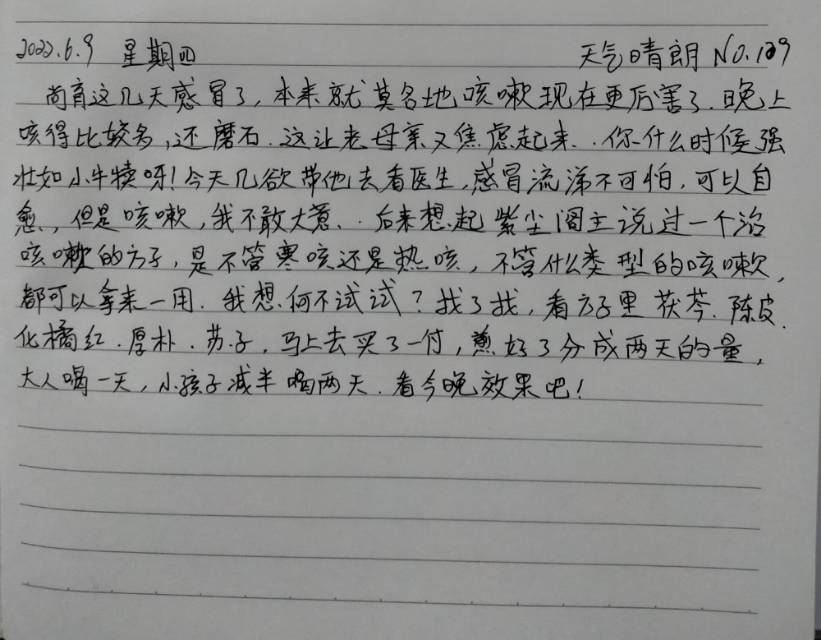 2022.6.9 星期四 天气晴朗 NO.129
尚育这几天感冒了,本来就莫名地咳嗽现在更厉害了.晚上
咳得比较多,还磨石.这让老母亲又焦虑起来..你什么时候强
壮如小牛犊呀!今天几欲带他去看医生,感冒流涕不可怕,可以自
愈,但是咳嗽,我不敢大意..后来想起紫尘阁主说过一个治
咳嗽的方子,是不管寒咳还是热咳,不管什么类型的咳嗽,
都可以拿来一用.我想何不试试?找了找,看方子里茯苓.陈皮.
化橘红.厚朴.苏子,马上去买了一付,煎好了分成两天的量,
大人喝一天,小孩子减半喝两天.看今晚效果吧!